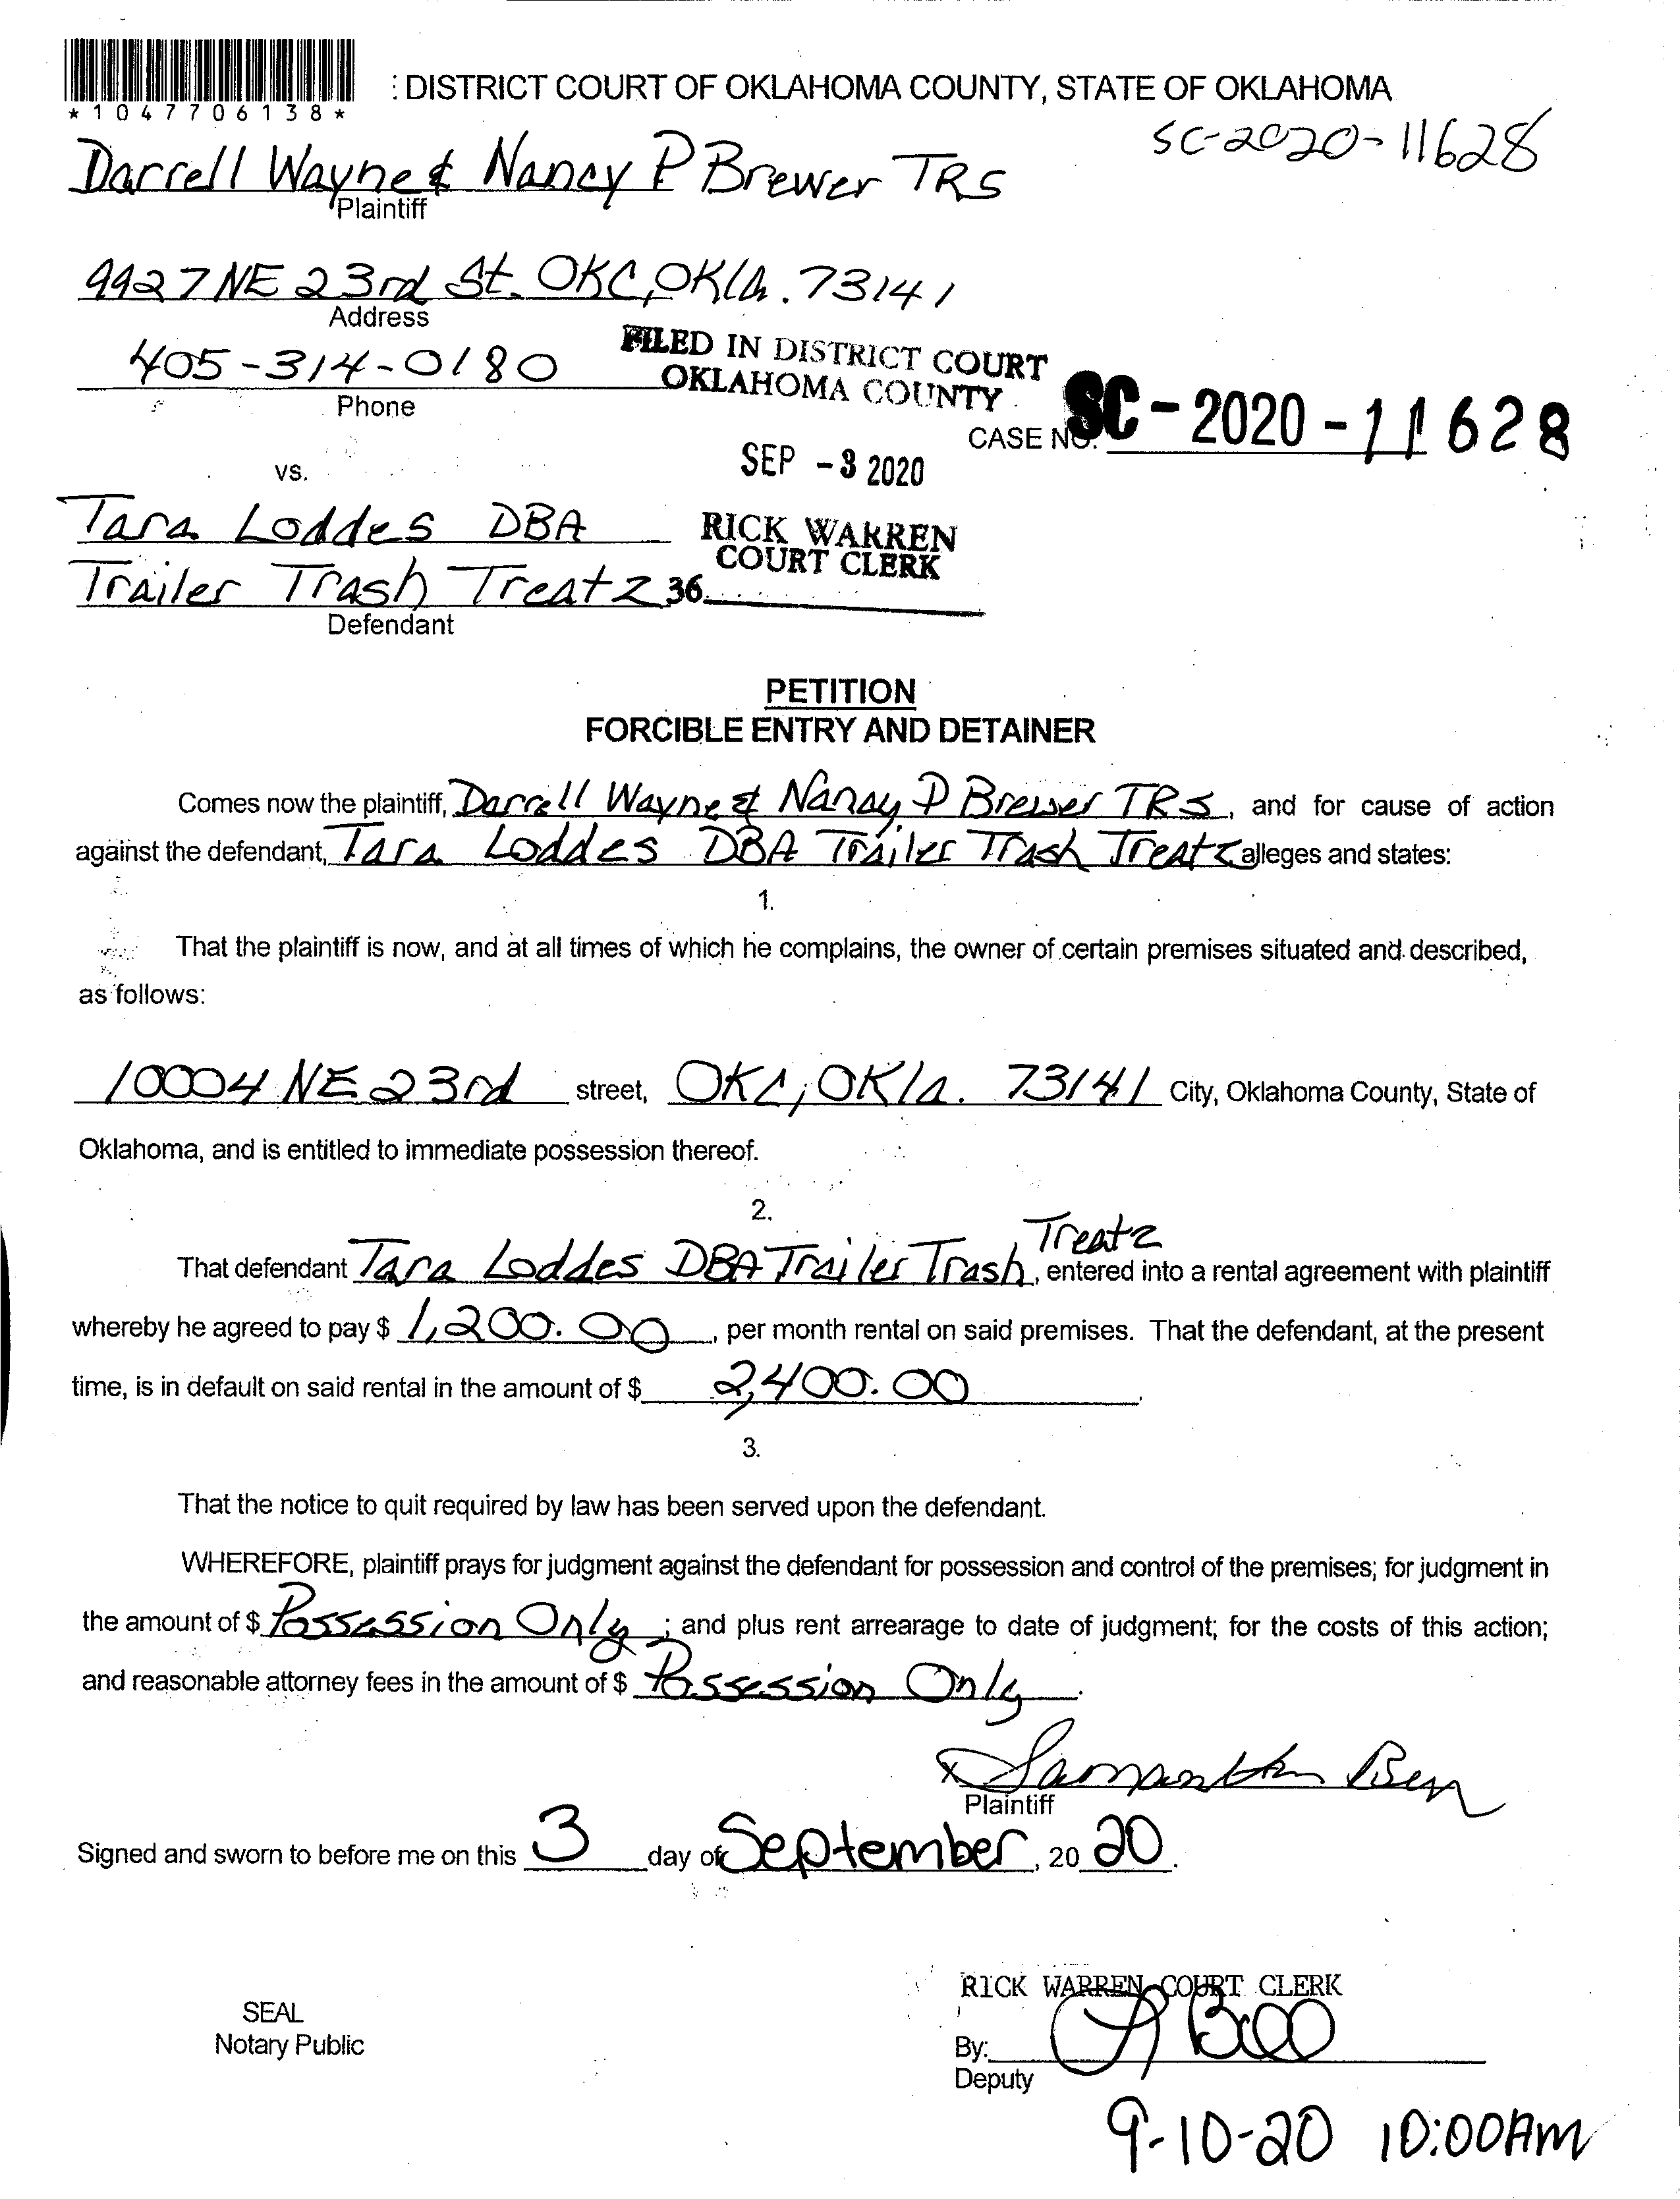 *1047706138*
: DISTRICT COURT OF OKLAHOMA COUNTY, STATE OF OKLAHOMA
SC-2020-11628
Darrell Wayne & Nancy P Brewer TRS
Plaintiff
9927 NE 23rd St. OKC, OKla. 73141
Address
405-314-0180
Phone
FILED IN DISTRICT COURT
OKLAHOMA COUNTY
CASE NO. SC-2020-11628
SEP -3 2020
vs.
Tara Loddes DBA
RICK WARREN
COURT CLERK
Trailer Trash Treatz 36
Defendant
PETITION
FORCIBLE ENTRY AND DETAINER
Comes now the plaintiff, Darrell Wayne & Nancy P Brewer TRS, and for cause of action
against the defendant, Tara Loddes DBA Trailer Trash Treatz alleges and states:
1.
That the plaintiff is now, and at all times of which he complains, the owner of certain premises situated and described,
as follows:
10004 NE 23rd street, OKC, OKla. 73141 City, Oklahoma County, State of
Oklahoma, and is entitled to immediate possession thereof.
2.
Treatz
That defendant Tara Loddes DBA Trailer Trash, entered into a rental agreement with plaintiff
whereby he agreed to pay $ 1,200.00, per month rental on said premises. That the defendant, at the present
time, is in default on said rental in the amount of $ 2,400.00.
3.
That the notice to quit required by law has been served upon the defendant.
WHEREFORE, plaintiff prays for judgment against the defendant for possession and control of the premises; for judgment in
the amount of $ Possession Only; and plus rent arrearage to date of judgment; for the costs of this action;
and reasonable attorney fees in the amount of $ Possession Only.
x Samantha
Plaintiff
Signed and sworn to before me on this 3 day of September, 20 20.
RICK WARREN COURT CLERK
SEAL
Notary Public
By:
Deputy
9-10-20 10:00AM